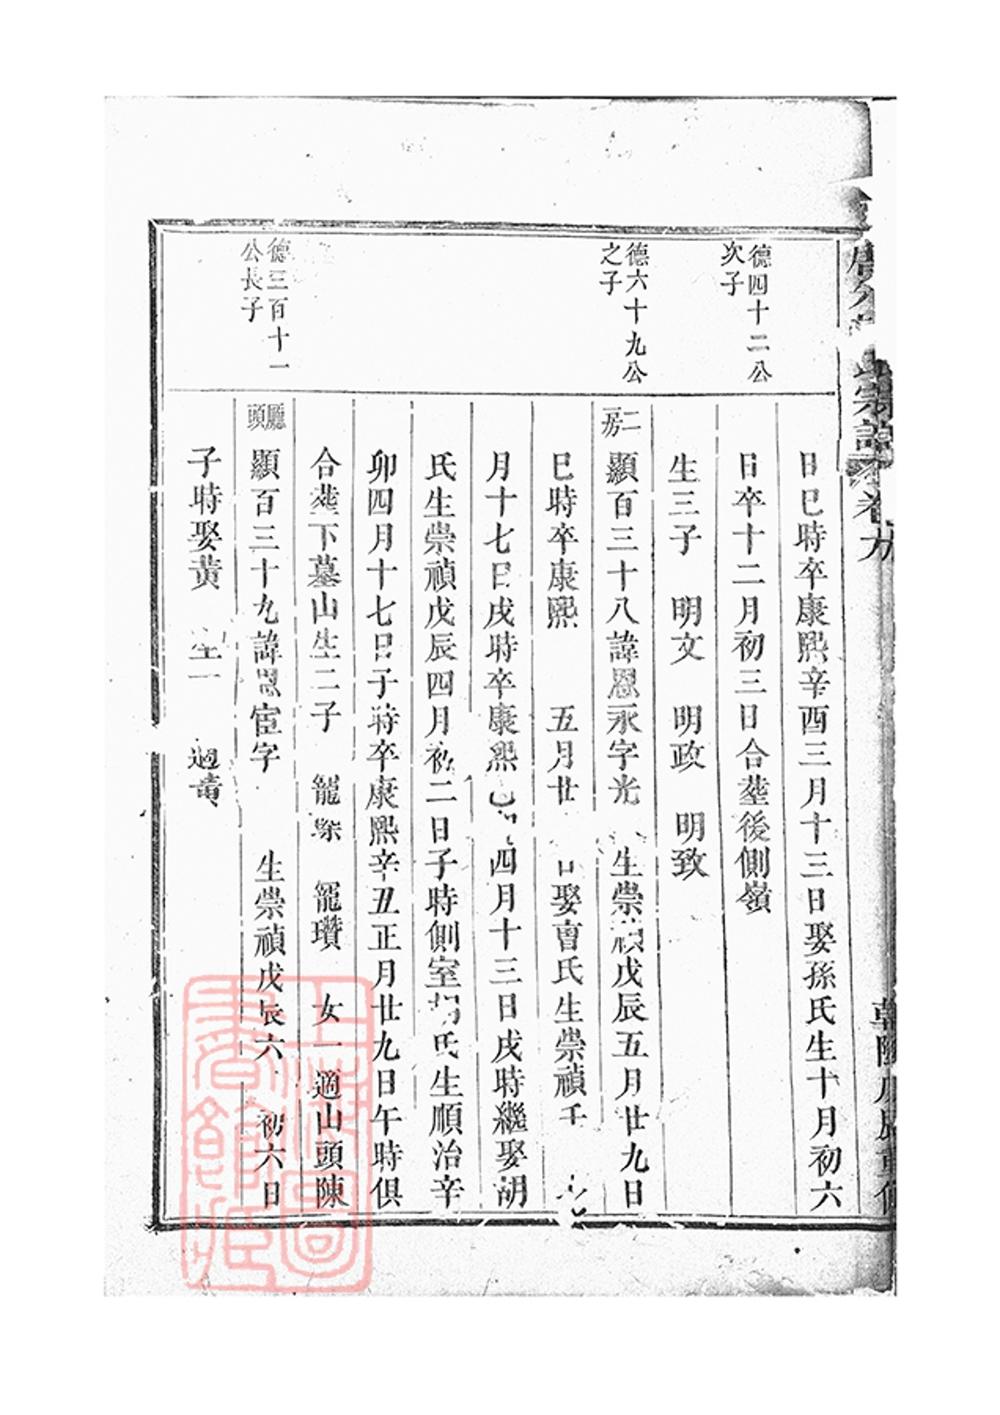 宗譜 卷九
德四十二公
次子
德六十九公
之子
德三百十一
公長子
日巳時卒康熙辛酉三月十三日娶孫氏生十月初六
日卒十二月初三日合塟後側嶺
生三子 明文 明政 明致
二房
顯百三十八諱恩永字光 生崇禎戊辰五月廿九日
巳時卒康熙 五月廿 日娶曹氏生崇禎壬
月十七日戌時卒康熙 四月十三日戌時繼娶胡
氏生崇禎戊辰四月初二日子時側室 氏生順治辛
卯四月十七日子時卒康熙辛丑正月廿九日午時俱
合塟下墓山生二子 龍 龍瓚 女一適山頭陳
廳頭
顯百三十九諱恩宦字 生崇禎戊辰六 初六日
子時娶黃 生一 適黃
上海圖書館藏